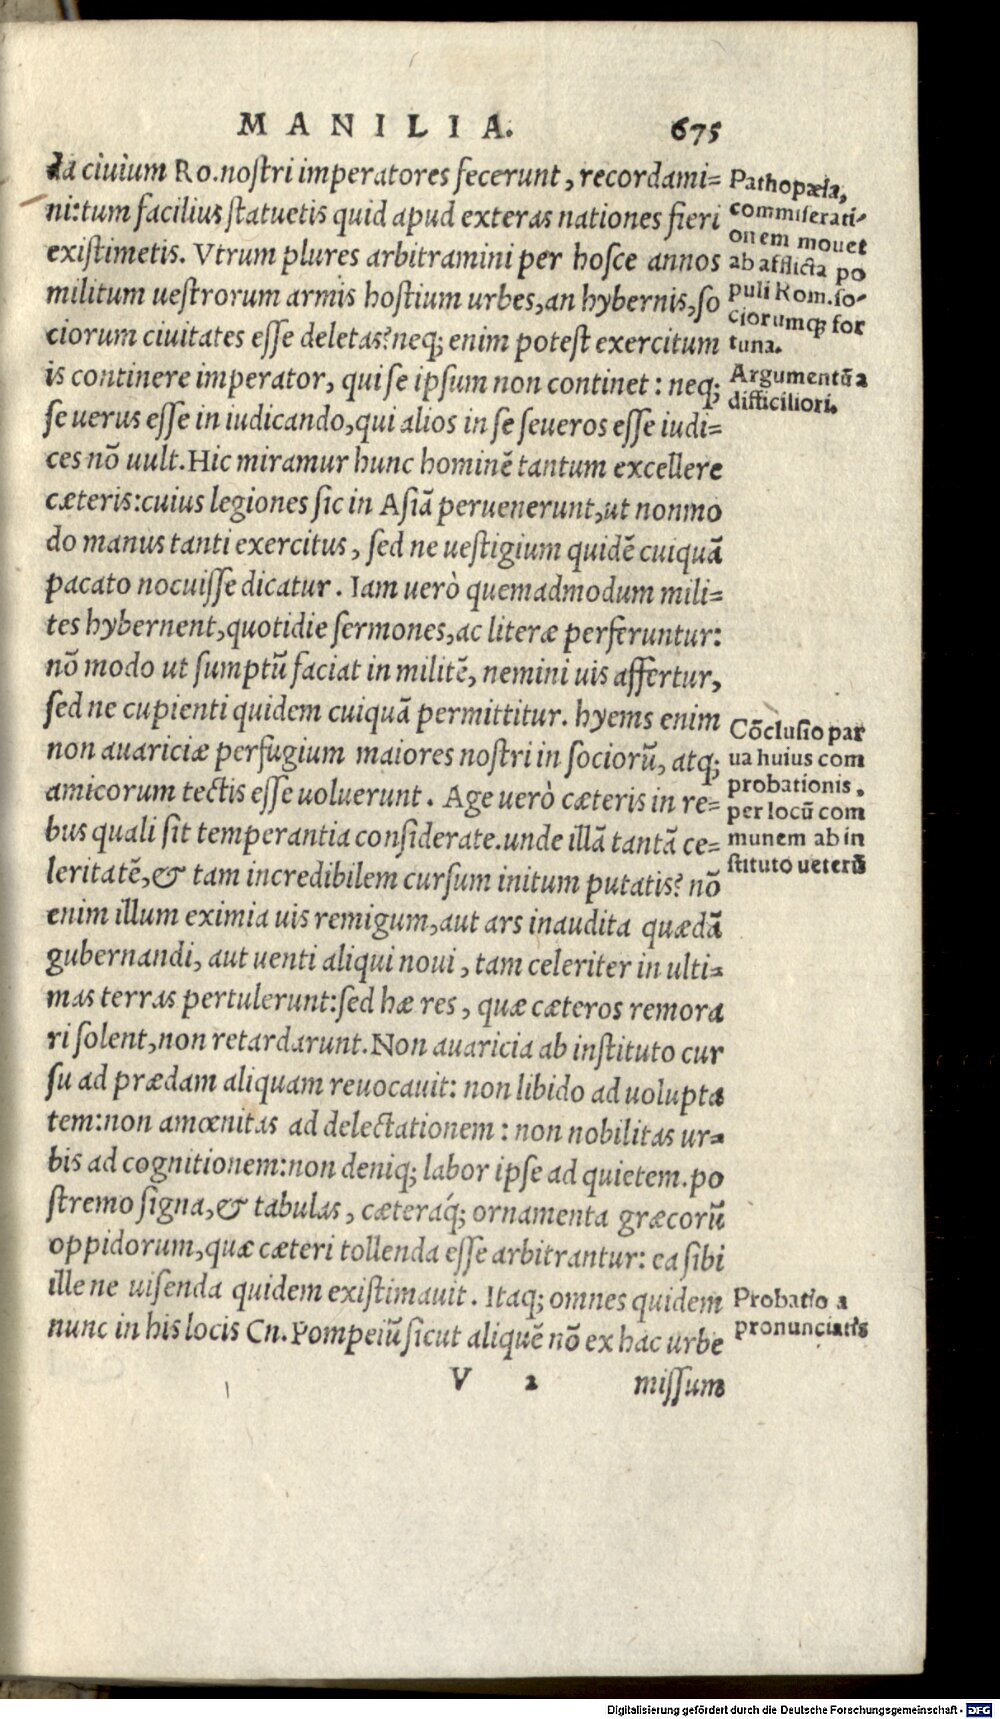 MANILIA. 675
da ciuium Ro. nostri imperatores fecerunt, recordami=
ni: tum facilius statuetis quid apud exteras nationes fieri
existimetis. Vtrum plures arbitramini per hosce annos
militum uestrorum armis hostium urbes, an hybernis, so
ciorum ciuitates esse deletas? neq; enim potest exercitum
is continere imperator, qui se ipsum non continet: neq;
seuerus esse in iudicando, qui alios in se seueros esse iudi=
ces nō uult. Hic miramur hunc hominē tantum excellere
cæteris: cuius legiones sic in Asiā peruenerunt, ut nonmo
do manus tanti exercitus, sed ne uestigium quidē cuiquā
pacato nocuisse dicatur. Iam uerò quemadmodum mili=
tes hybernent, quotidie sermones, ac literæ perferuntur:
nō modo ut sumptū faciat in militē, nemini uis affertur,
sed ne cupienti quidem cuiquā permittitur. hyems enim
non auariciæ perfugium maiores nostri in sociorū, atq;
amicorum tectis esse uoluerunt. Age uerò cæteris in re=
bus quali sit temperantia considerate. unde illā tantā ce=
leritatē, & tam incredibilem cursum initum putatis? nō
enim illum eximia uis remigum, aut ars inaudita quædā
gubernandi, aut uenti aliqui noui, tam celeriter in ulti=
mas terras pertulerunt: sed hæ res, quæ cæteros remora
ri solent, non retardarunt. Non auaricia ab instituto cur
su ad prædam aliquam reuocauit: non libido ad uolupta
tem: non amœnitas ad delectationem: non nobilitas ur=
bis ad cognitionem: non deniq; labor ipse ad quietem. po
stremo signa, & tabulas, cæteráq; ornamenta græcorū
oppidorum, quæ cæteri tollenda esse arbitrantur: ea sibi
ille ne uisenda quidem existimauit. Itaq; omnes quidem
nunc in his locis Cn. Pompeiū sicut aliquē nō ex hac urbe
V 2 missum
Pathopæia,
commiserati=
onem mouet
ab afflicta po
puli Rom. so=
ciorumq; for
tuna.
Argumentū a
difficiliori.
Cōclusio par
ua huius com
probationis.
per locū com
munem ab in
stituto ueterū
Probatio a
pronunciatis
Digitalisierung gefördert durch die Deutsche Forschungsgemeinschaft - DFG